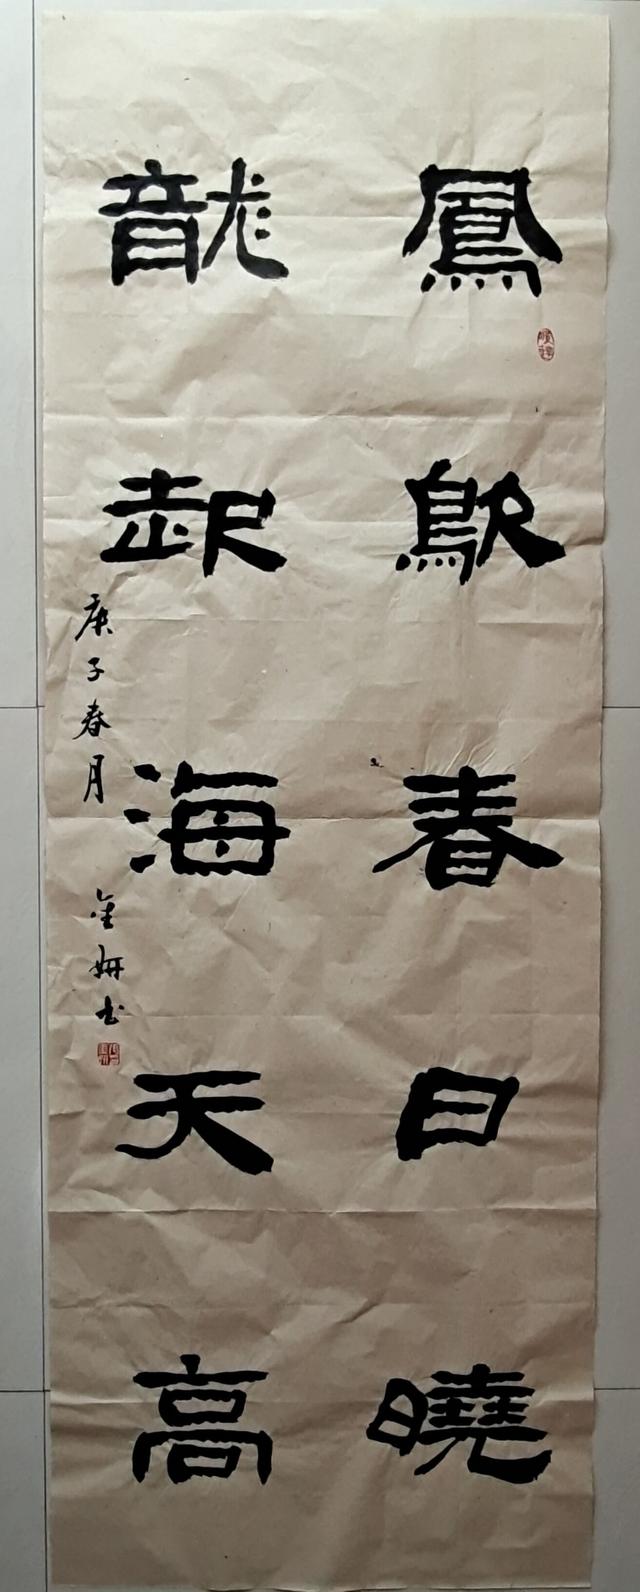 鳳春日曉
龍起海天高
庚子春月
金书